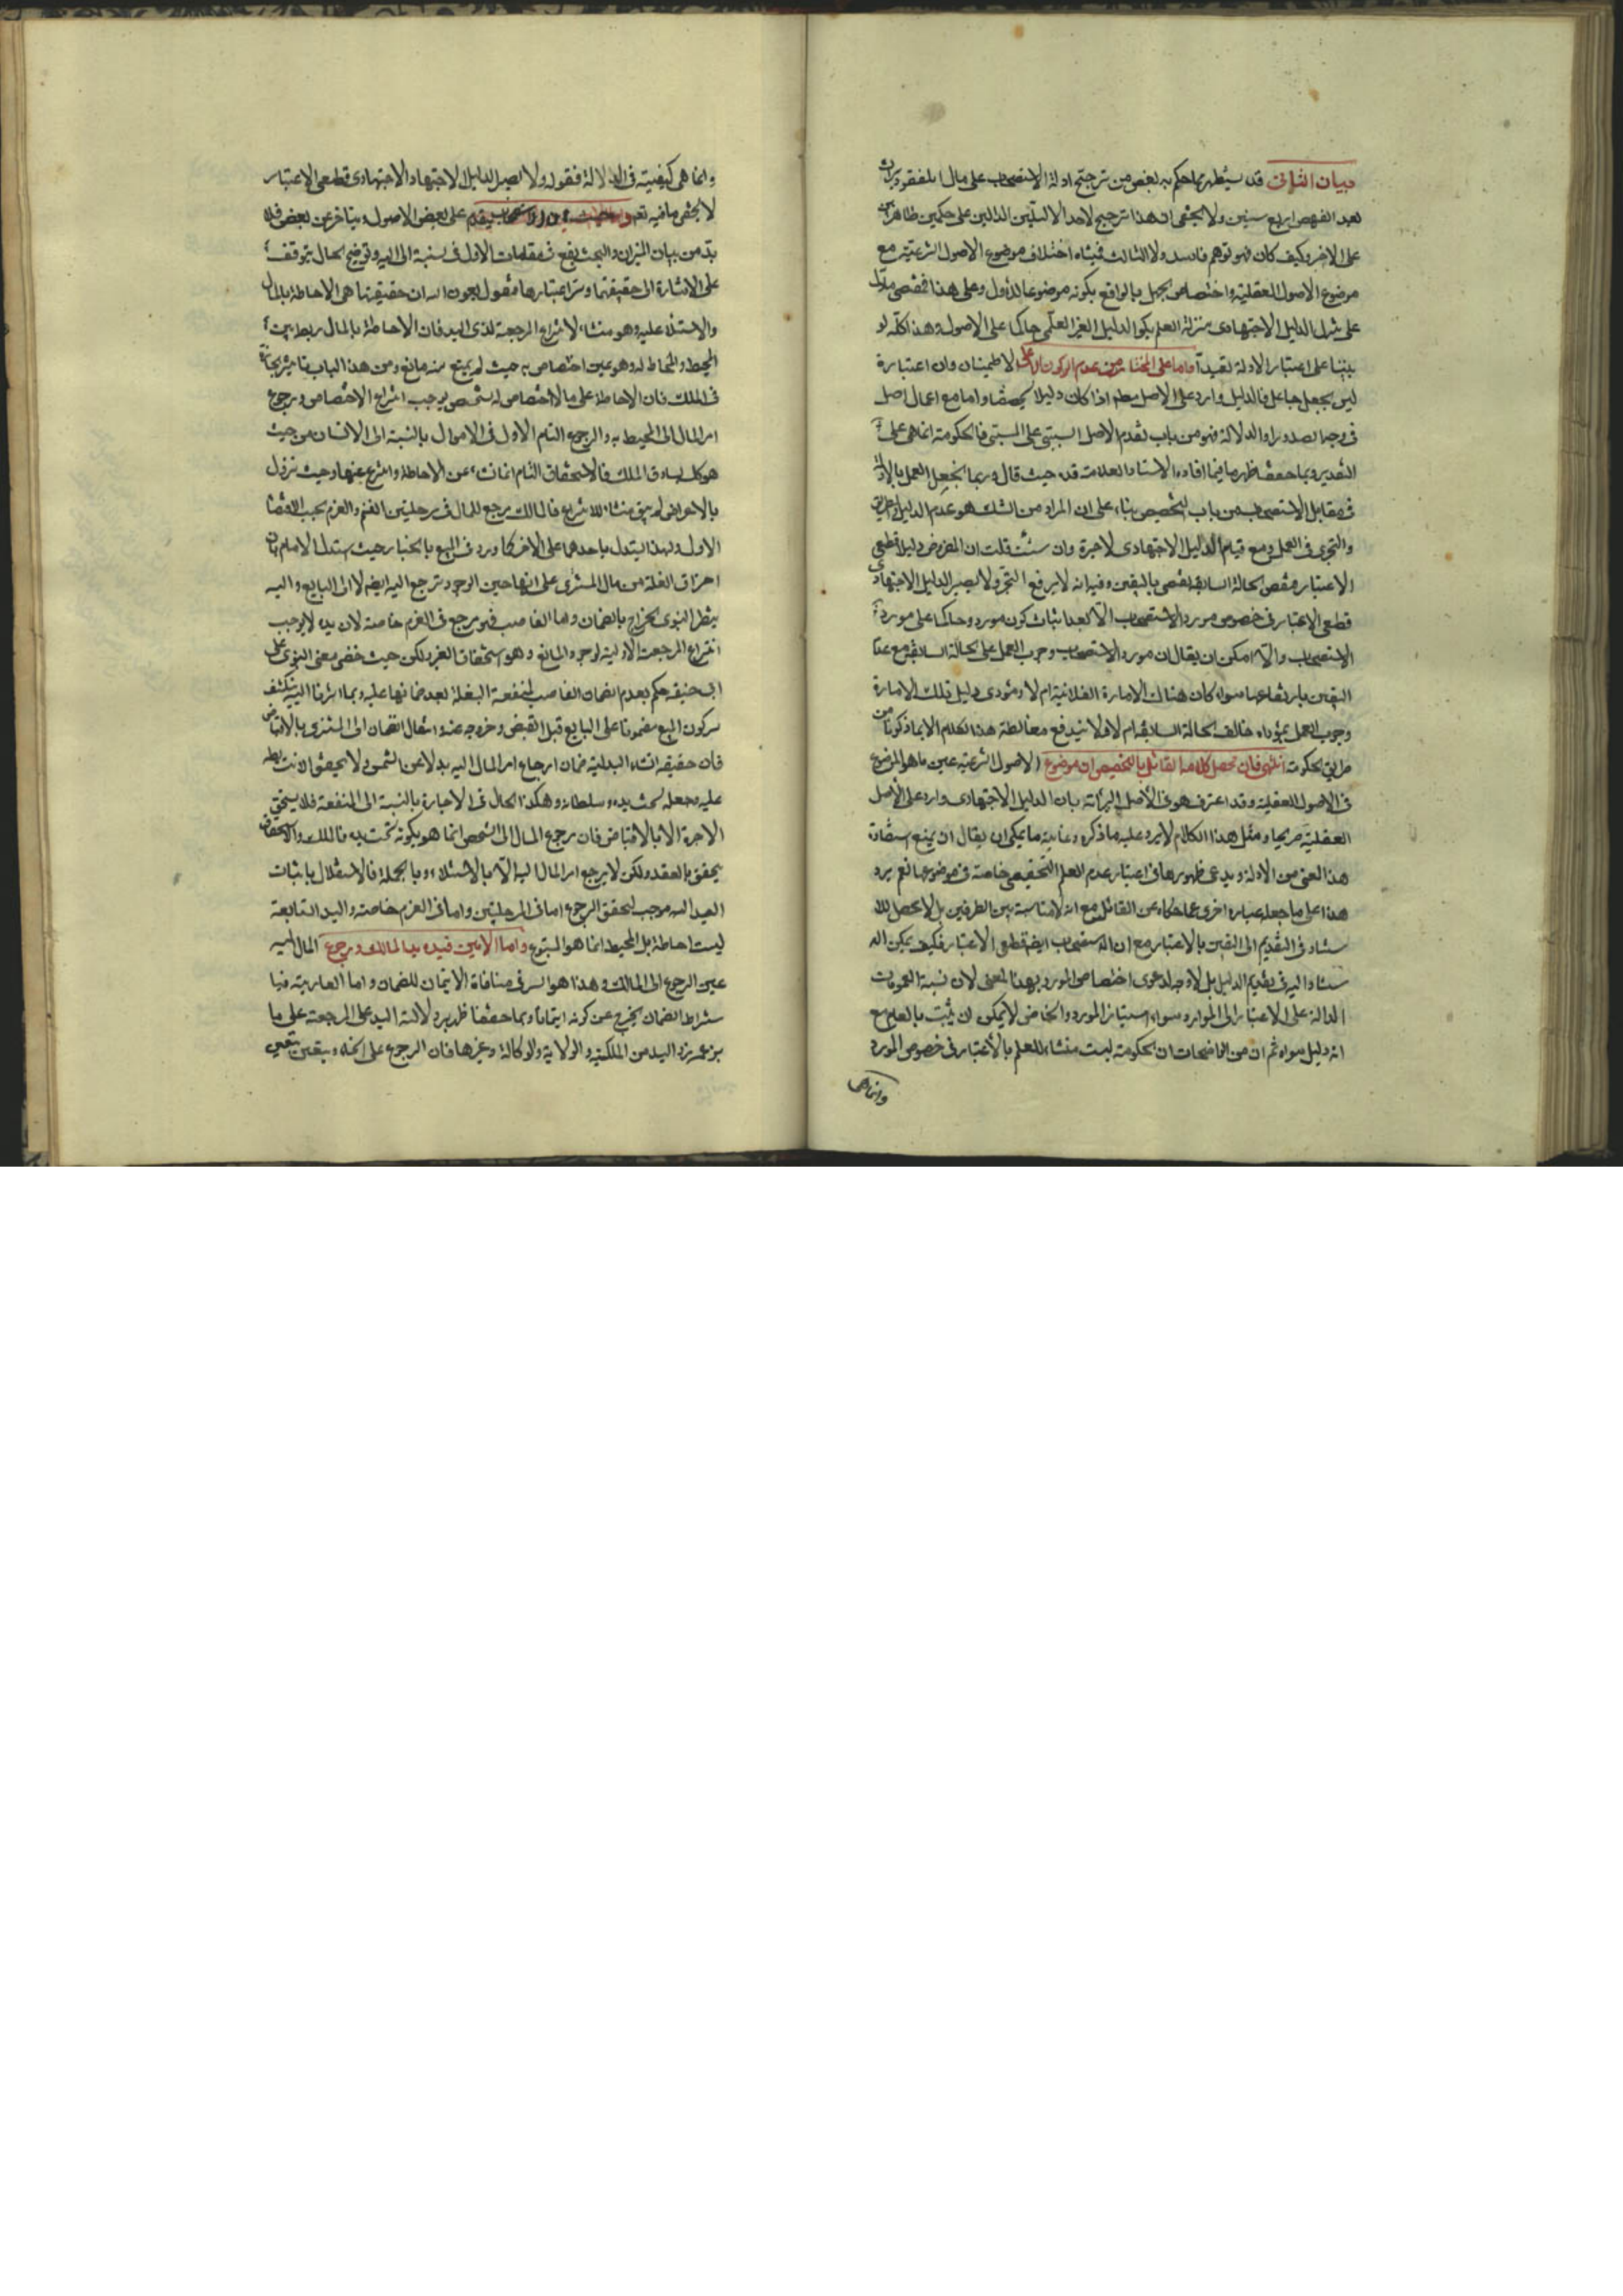 بيان الثانى قد سيظهر مما حكم به بعض من ترجيح ادلة الاستصحاب على مال المفقود
بعد الفحص اربع سنين ولا يخفى ان هذا ترجيح لاحد الدليلين على حكمين ظاهرين
على الاخر وكيف كان فهو توهم فاسد ولا الثالث فمنشاه اختلاف موضوع الاصول الشرعية مع
موضوع الاصول العقلية واختصاص الجهل بالواقع بكونه موضوعا للاول وعلى هذا فمقتضى مادل
على تنزل الدليل الاجتهادى منزلة العلم يكون الدليل الغير العلمى حاكما على الاصول وهذا كله لو
بنينا على اعتبار الادلة تعبداً واما على المختار من عدم الركون الا على الاطمينان وان اعتباره
ليس بجعل جاعل فالدليل وارد على الاصل مطم اذا كان دليلا واما مع اعمال اصل
فى وجه الصدور او الدلالة فهو من باب تقدم الاصل السببى على المسببى فالحكومة انما هى على
التقدير وبما حققنا ظهر ما فيما افاده الاستاد العلامة قده حيث قال وربما يجعل العمل بالادلة
فى مقابل الاستصحاب من باب التخصيص بناء على ان المراد من الشك هو عدم الدليل والطريق
والتحير فى العمل ومع قيام الدليل الاجتهادى لا حيرة وان شئت قلت ان المفروض دليلا قطعى
الاعتبار فنقض الحالة السابقة نقض باليقين وفيه انه لا يرفع التحير ولا يصير الدليل الاجتهادى
قطعى الاعتبار فى خصوص مورد الاستصحاب الا بعد اثبات كون مورده حاكما على مورد
الاستصحاب والا امكن ان يقال ان مورد الاستصحاب وجوب العمل على الحالة السابقة مع عدم
اليقين بارتفاعها سواء كان هناك الامارة الفلانية ام لا ومؤدى دليل تلك الامارة
وجوب العمل بمؤداه خالف الحالة السابقة ام لا فلا يندفع مغالطة هذا الكلام الا بما ذكرنا من
طريق الحكومة انتهى فان محصل كلام القائل بالتخصيص ان موضوع الاصول الشرعية عين ما هو الموضوع
فى الاصول العقلية وقد اعترف هو فى الاصل البرائة بان الدليل الاجتهادى وارد على الاصل
العقلية صريحا ومثل هذا الكلام لا يرد عليه ما ذكره وغاية ما يمكن ان يقال ان يمنع استفادة
هذا المعنى من الادلة ويدعى ظهورها فى اعتبار عدم العلم التحقيقى خاصة فى موضوعها نعم يرد
هذا على ما جعله عبارة اخرى عما حكاه عن القائل مع انه لا مناسبة بين الطرفين بل لا محصل للا
ستناد فى التقديم الى اليقين بالاعتبار مع ان الاستصحاب ايضا قطعى الاعتبار فكيف يمكن الا
ستناد اليه فى تقديم الدليل بل لا وجه لدعوى اختصاص المورد بهذا المعنى لان نسبة العمومات
الدالة على الاعتبار الى الموارد سواء امتياز المورد والخاص لا يمكن ان يثبت بالعلم مع
انه دليل سواه ثم ان من الواضحات ان الحكومة ليست منشاء للعلم بالاعتبار فى خصوص المورد
وانما هى
وانما هى كيفية فى الدلالة فقوله ولا يصير الدليل الاجتهادى قطعى الاعتبار
لا يخفى ما فيه نعم يقدم على بعض الاصول ويتاخر عن بعض فلا
بد من بيان الميزان والبحث يقع فى مقامات الاول فى نسبة الى اليد وتوضيح الحال يتوقف
على الاشارة الى حقيقتها وسر اعتبارها فنقول بعون الله ان حقيقتها هى الاحاطة بالمال
والاستيلاء عليه وهو منشاء لانتزاع المرجعية لذى اليد فان الاحاطة بالمال ربط بين
المحيط والمحاط له وهو عين اختصاص به حيث لم يمنع منه مانع ومن هذا الباب تاثير الحيازة
فى الملك فان الاحاطة على ما لا اختصاص له بشخص يوجب انتزاع الاختصاص ورجوع
امر المال الى المحيط به والرجوع التام الاول فى الاموال بالنسبة الى الانسان من حيث
هو كك يساوق الملك فالاستحقاق التام انما نشاء عن الاحاطة وانتزع عنها وحيث تزول
بالاعراض لم يبق منشاء للانتزاع فالمالك مرجع للمال فى مرحلتين الغنم والغرم بحسب الاقتضا
الاول ولهذا يستدل باحدهما على الاخر كما ورد فى البيع بالخيار حيث استدل الامام بان
احراق الغلة من مال المشترى على انها حين الوجود ترجع اليه ايضا لا الى البايع واليه
ينظر النبوى الخراج بالضمان واما الغاصب فهو مرجع فى الغرم خاصة لان يده لا يوجب
انتزاع المرجعية الاولية لوجود المانع وهو استحقاق الغير ولكن حيث خفى معنى النبوى على
ابى حنيفة حكم بعدم ضمان الغاصب لمنفعة البغلة بعد ضمانها عليه وبما اشرنا اليه ينكشف
سر كون المبيع مضمونا على البايع قبل القبض وخروجه عنه وانتقال الضمان الى المشترى بالاقباض
فان حقيقة انشاء البدلية ضمان ارجاع امر المال اليه بدلا عن الثمن ولا يتحقق الا بتسليطه
عليه وجعله تحت يده وسلطانه وهكذا الحال فى الاجارة بالنسبة الى المنفعة فلا يستحق
الاجرة الا بالاقباض فان رجوع المال الى الشخص انما هو بكونه تحت يده فالملك والاستحقاق
يتحقق بالعقد ولكن لا يرجع امر المال اليه الا بالاستيلاء وبالجملة فالاستقلال باثبات
اليد موجب لتحقق الرجوع اما فى المرحلتين واما فى الغرم خاصة واليد التابعة
ليست احاطة بل المحيط انما هو المتبوع واما الامين فيده يد المالك ورجوع المال اليه
عين الرجوع الى المالك وهذا هو السر فى منافاة الايتمان للضمان واما العارية فبا
شتراط الضمان يخرج عن كونه ايتمانا وبما حققنا ظهر سر دلالة اليد على المرجعية على ما
يزعمه ذو اليد من الملكية والولاية والوكالة وغيرها فان الرجوع على انحاء ويتعين